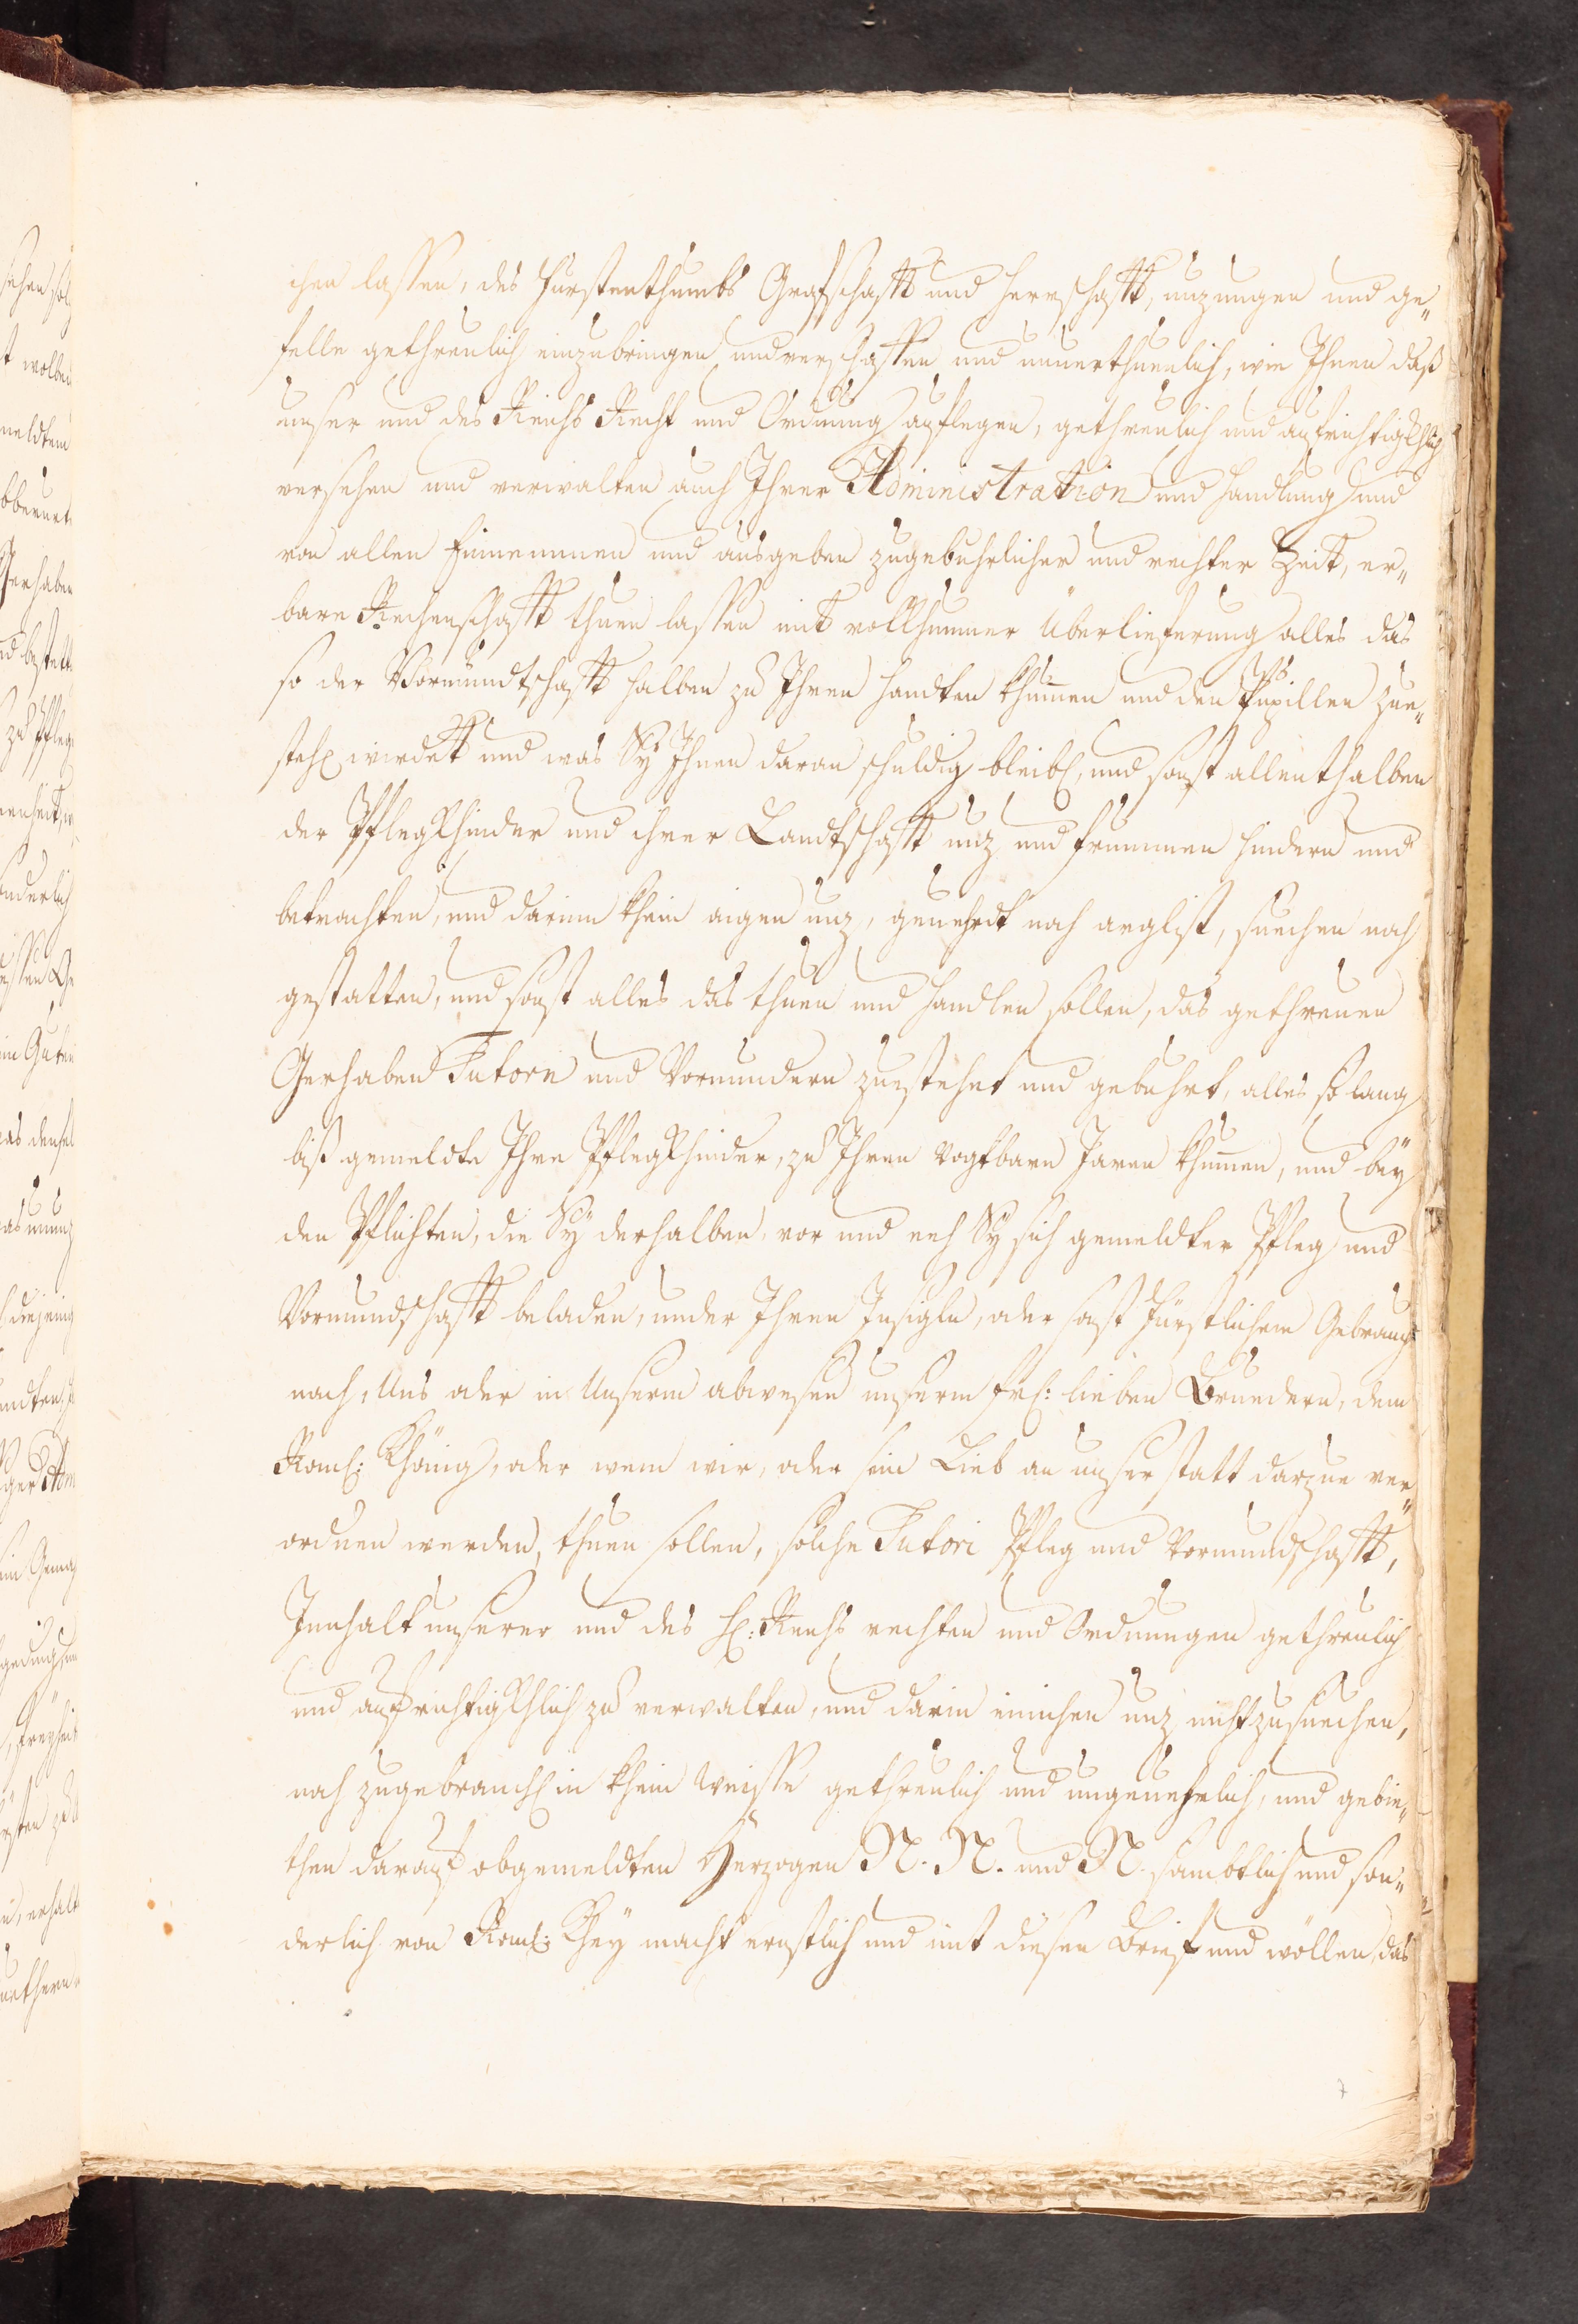 chen lassen, des Fürstenthumbs Grafschafft und Herrschafft, nuzungen und ge„
felle gethreulich einzubringen und verschaffen und unverthunlich, wie Ihnen daß
unser und des Reichs Recht und Ordnung auflegen, gethreulich und aufrichtigkhlich
versehen und verwalten auch Ihrer Administration und Handlung und
von allen Einnemmen und ausgeben zugebuhrlicher und rechter Zeit, er„
bare Rechenschafft thuen lassen mit volkhumner Überlieferung alles das
so der Vormundtschafft halben zu Ihren Handten khummen und den Pupillen zue„
steh wirdet und was Sy Ihnen daran schuldig bleib, und sonst allenthalben
der Pflegkhinder und ihrer Landtschafft nuz und frummen hindern und
betrachten, und darinn khein aigen nuz, geuehrdt noch arglist, suechen noch
gestatten, und sonst alles das thuen und handlen sollen, das gethreuen
Gerhaben Tutorn und Vormundern zuestehet und gebuhrt, alles so lang
biß gemeldte Ihre Pflegkhinder, zu Ihren vogtbarn Jaren khummen, und bey
den Pflichten, die Sy derhalben, vor und eeh Sy sich gemeldter Pfleg und
Vormundschafft beladen, under Ihren Insigln, oder sonst Fürstlichem Gebrauch
nach, Uns oder in Unserm abwesen unserm frl: lieben Bruedern, dem
Röml: Khönig, oder wem wir, oder sein Lieb an unser statt darzue ver„
ordnen werden, thuen sollen, solche Tutori Pfleg und Vormundschafft,
Innhalt unserer und des h: Reichs rechten und Ordnungen gethreulich
und aufrichtigkhlich zu verwalten, und darin einichen nuz nicht zusuechen,
noch zugebrauch in khein weisse gethreulich und ungeuehrlich, und gebie„
then darauf obgemeldten Herzogen N. N. und N. sambtlich und son„
derlich von Röml: Khay macht ernstlich und mit diesen Brief und wöllen, das